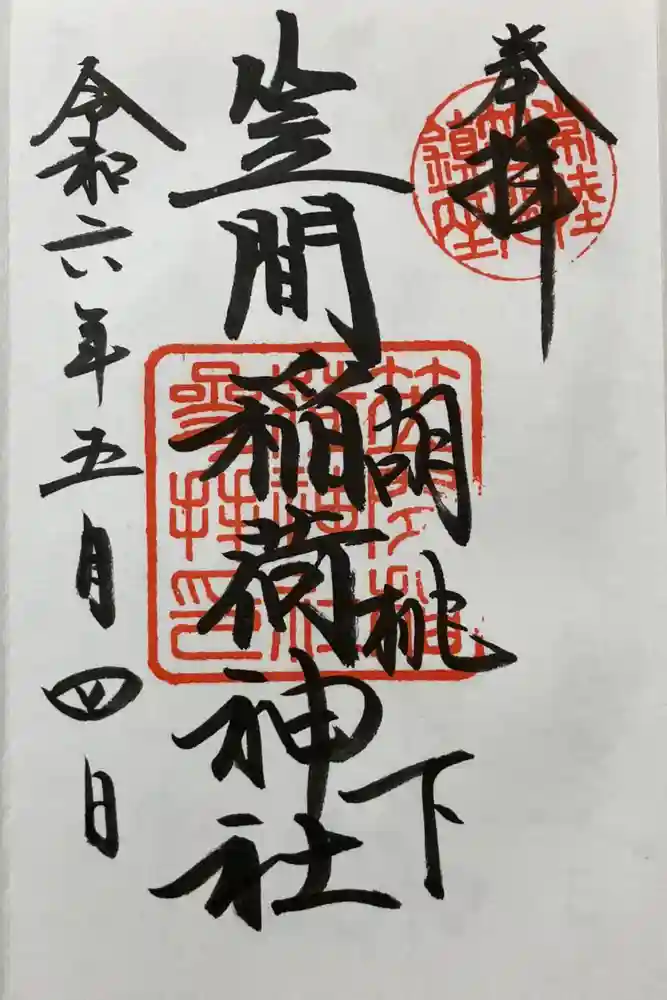 奉拝
常陸
鎮座
胡桃下
笠間稲荷神社
參拝印
令和六年五月四日